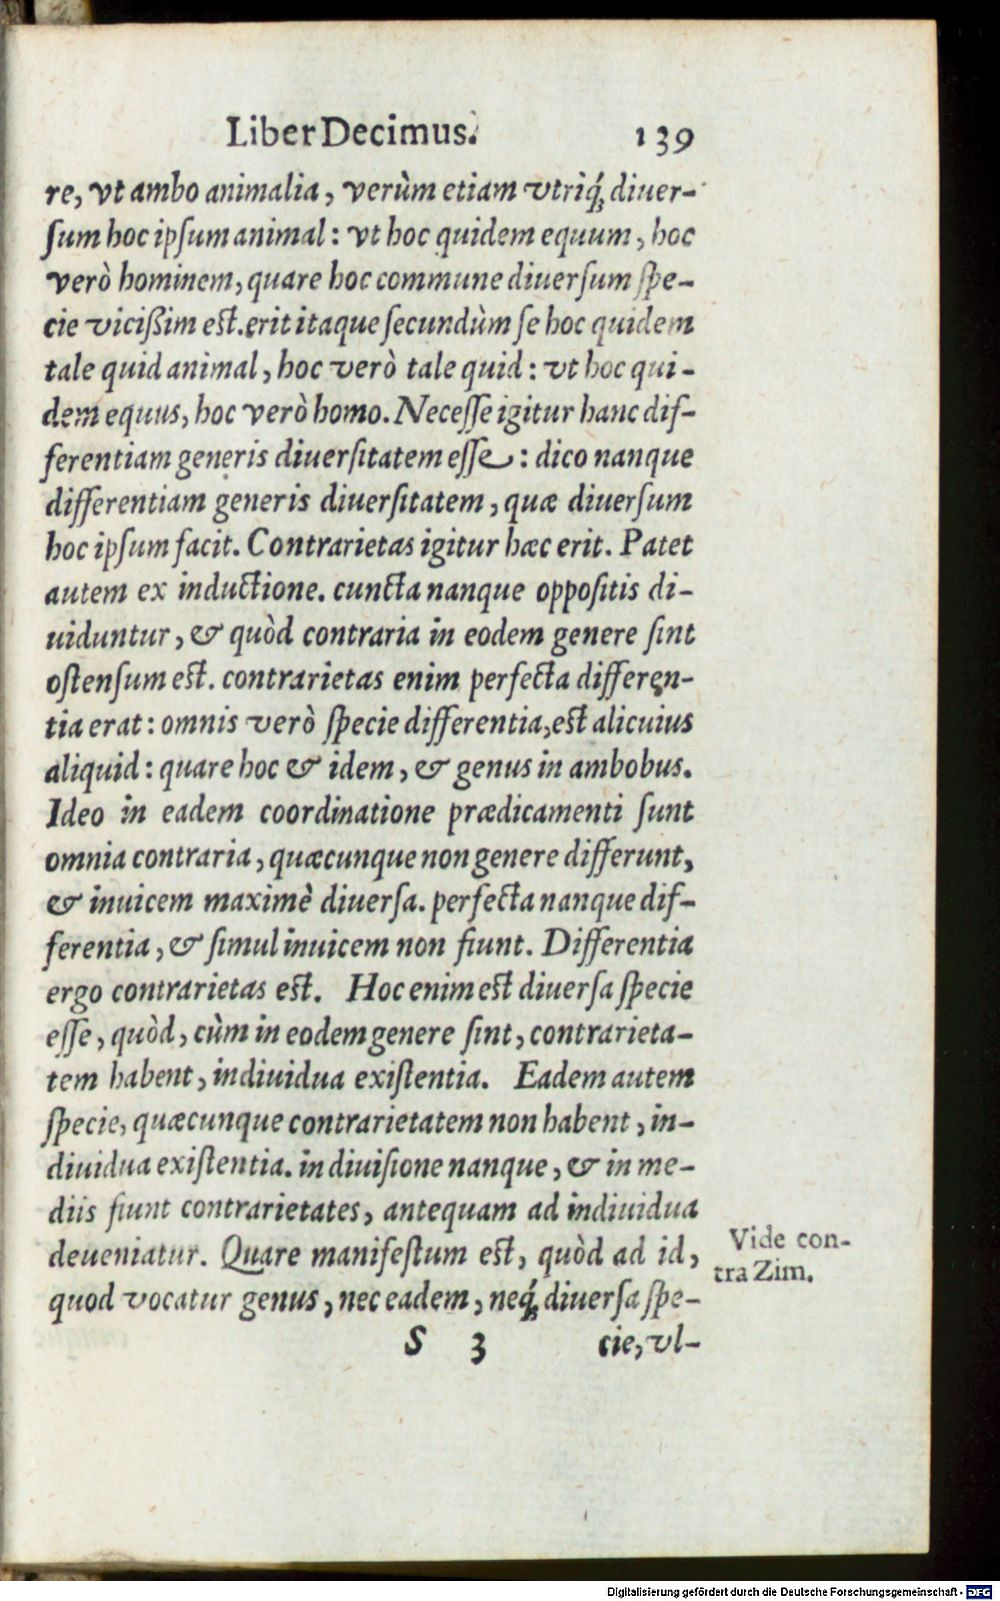 Liber Decimus. 139
re, vt ambo animalia, verùm etiam vtriq́; diuer-
ſum hoc ipſum animal: vt hoc quidem equum, hoc
verò hominem, quare hoc commune diuerſum ſpe-
cie viciſſim eſt. erit itaque ſecundùm ſe hoc quidem
tale quid animal, hoc verò tale quid: vt hoc qui-
dem equus, hoc verò homo. Neceſſe igitur hanc dif-
ferentiam generis diuerſitatem eſſe: dico nanque
differentiam generis diuerſitatem, quæ diuerſum
hoc ipſum facit. Contrarietas igitur hæc erit. Patet
autem ex inductione. cuncta nanque oppoſitis di-
uiduntur, & quòd contraria in eodem genere ſint
oſtenſum eſt. contrarietas enim perfecta differen-
tia erat: omnis verò ſpecie differentia, eſt alicuius
aliquid: quare hoc & idem, & genus in ambobus.
Ideo in eadem coordinatione prædicamenti ſunt
omnia contraria, quæcunque non genere differunt,
& inuicem maximè diuerſa. perfecta nanque dif-
ferentia, & ſimul inuicem non fiunt. Differentia
ergo contrarietas eſt. Hoc enim eſt diuerſa ſpecie
eſſe, quòd, cùm in eodem genere ſint, contrarieta-
tem habent, indiuidua exiſtentia. Eadem autem
ſpecie, quæcunque contrarietatem non habent, in-
diuidua exiſtentia. in diuiſione nanque, & in me-
diis fiunt contrarietates, antequam ad indiuidua
deueniatur. Quare manifeſtum eſt, quòd ad id,
Vide con-
tra Zim.
quod vocatur genus, nec eadem, neq́; diuerſa ſpe-
S 3 cie, vl-
Digitalisierung gefördert durch die Deutsche Forschungsgemeinschaft - DFG